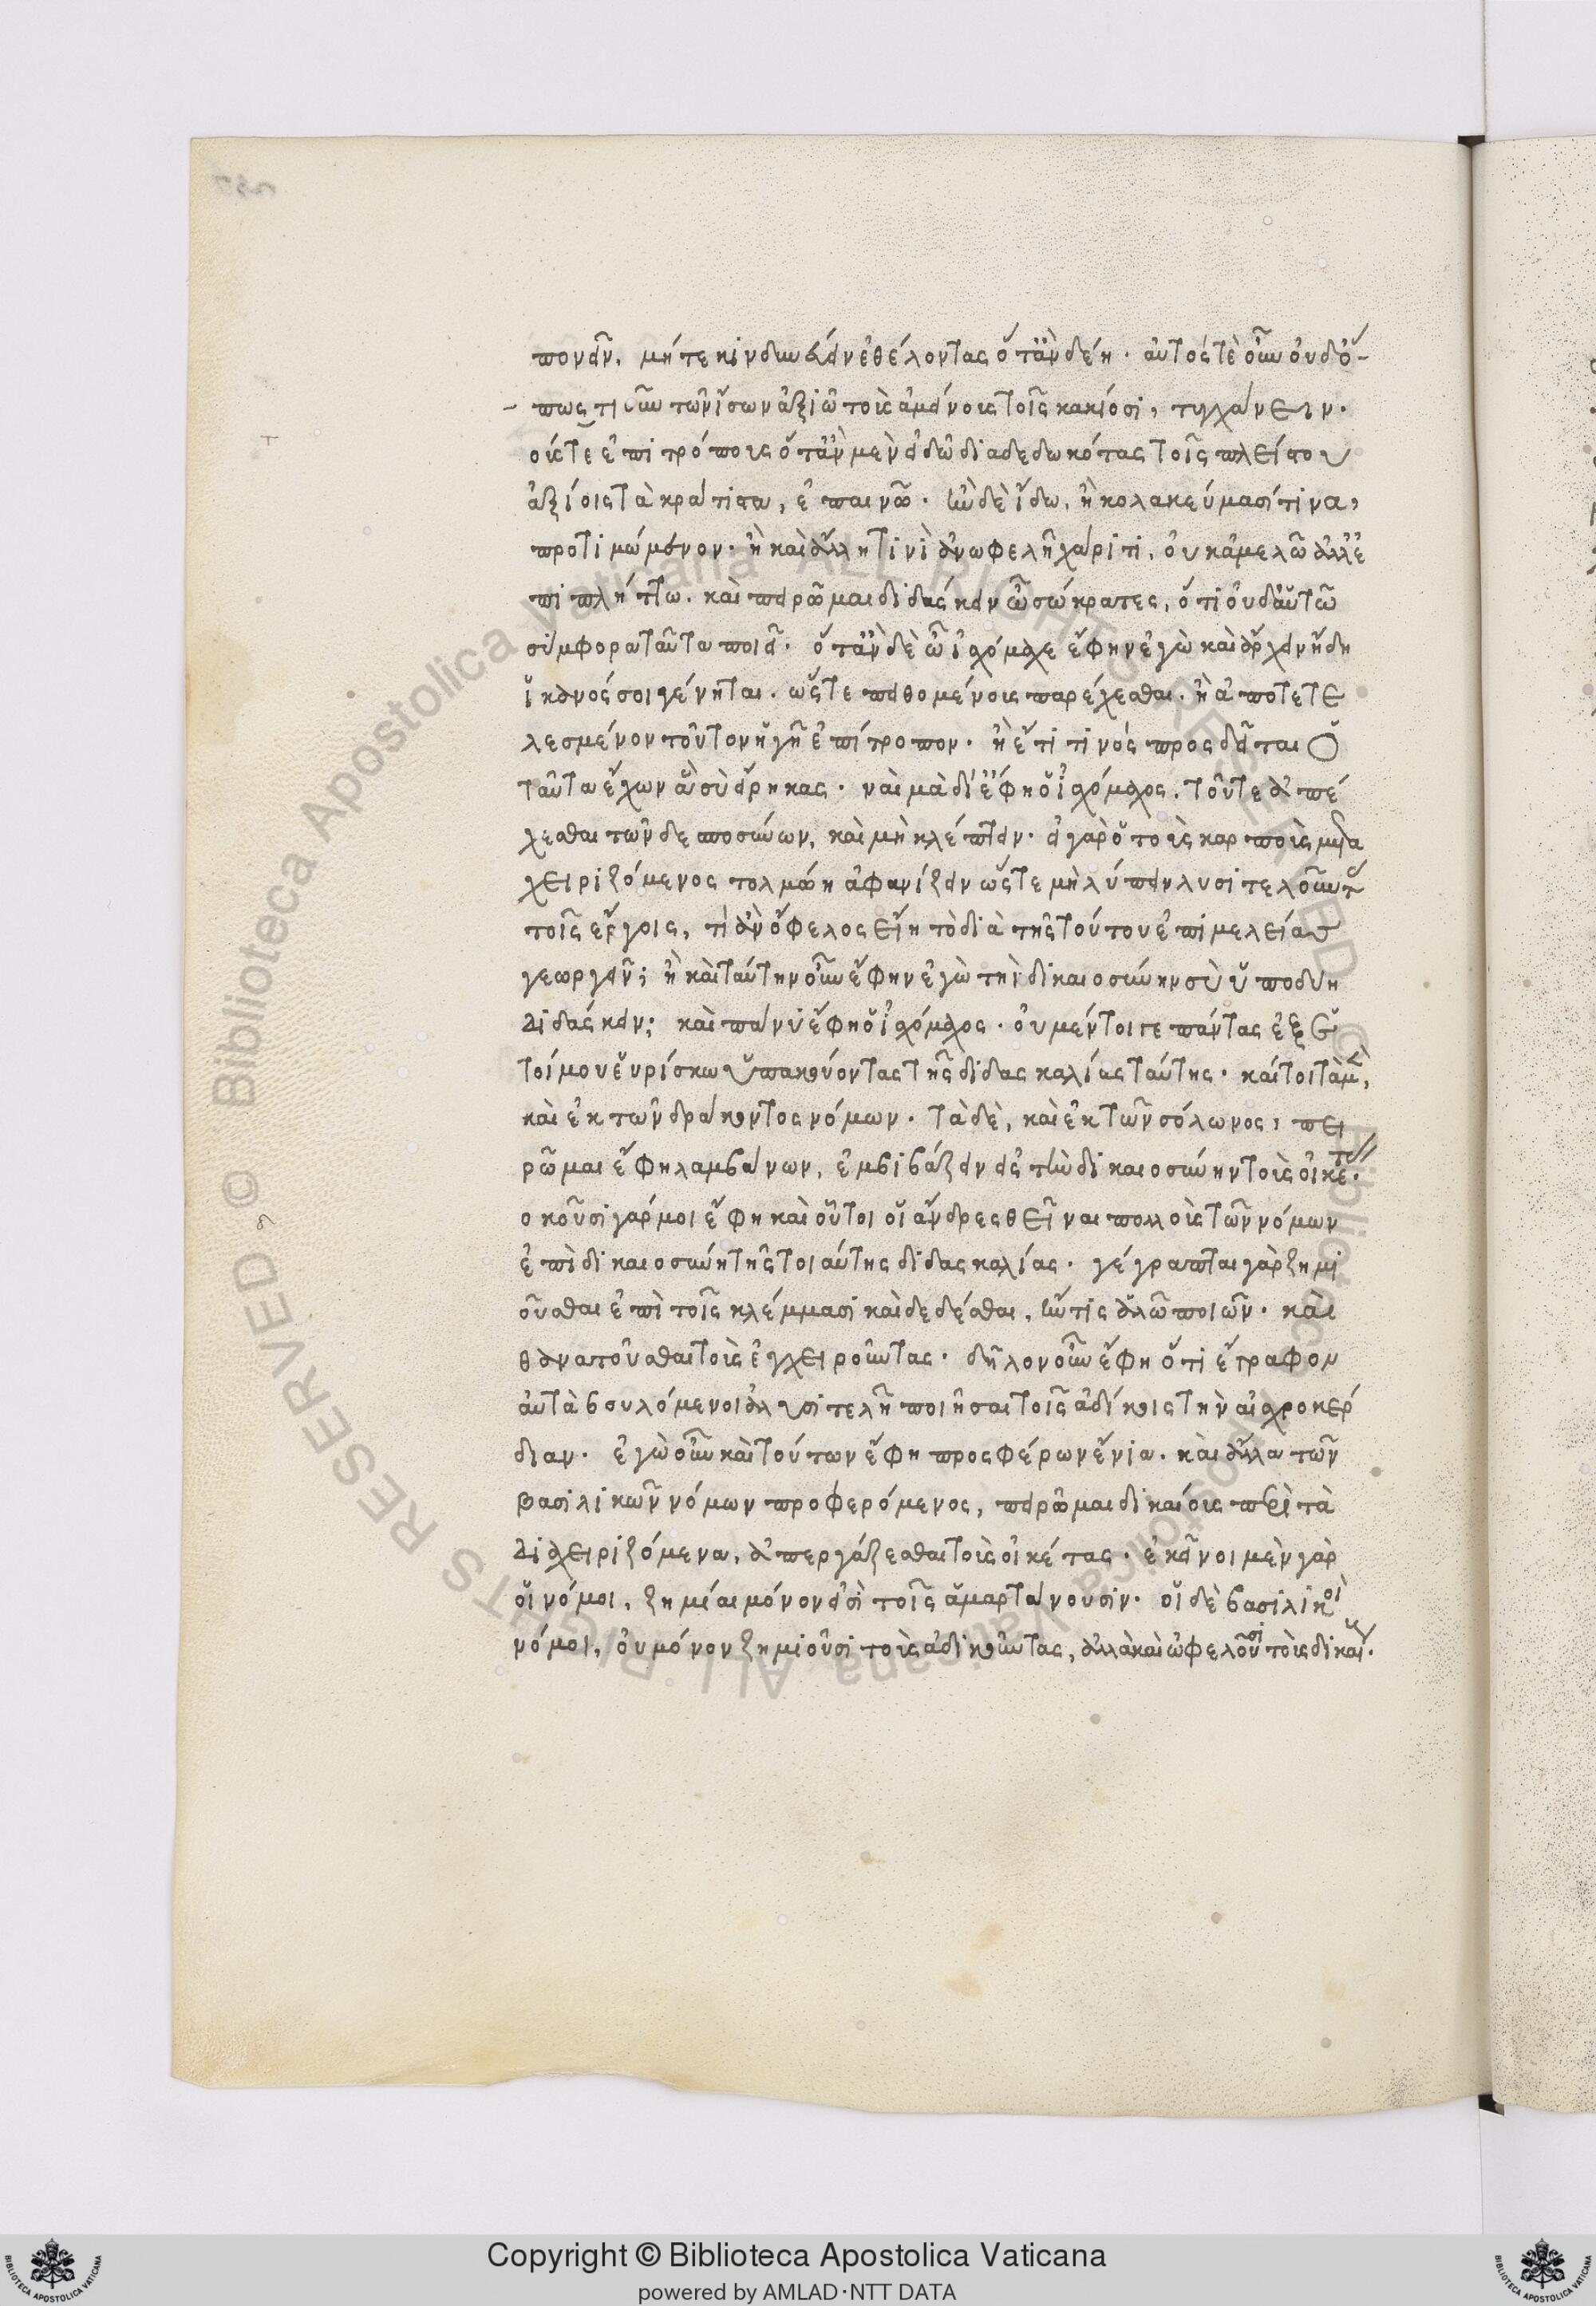 πονεῖν, μήτε κινδυνεύειν ἐθέλοντας ὅτἂν δέῃ. αὐτός τὲ οὖν οὐδό-
-πως τι οὖν τῶν ἴσων ἀξιῶ τοὺς ἀμείνους τοῖς κακίοσι, τυγχάνειν.
οὕς τε ἐπιτρόπους ὅτἂν μὲν εἰδῶ διαδεδωκότας τοῖς πλείστου
ἀξίοις τὰ κράτιστα, ἐπαινῶ. ἢν δὲ ἴδω, ἢ κολακεύμασί τινα,
προτιμώμενον. ἢ καὶ ἄλλῃ τινὶ ἀνωφελῆ χάριτι, οὐκ ἀμελῶ ἀλλ' ἐ
πιπλήττω. καὶ πειρῶμαι διδάσκειν ὦ σώκρατες, ὅτι οὐδ' αὑτῶ
σύμφορα ταῦτα ποιεῖ. ὅτἂν δὲ ὦ ἰσχόμαχε ἔφην ἐγὼ καὶ ἄρχειν ἤδη
ἱκανός σοι γένηται. ὥςτε πειθομένους παρέχεσθαι. ἢ ἀποτετε
λεσμένον τοῦτον ἡγῆ ἐπίτροπον. ἢ ἔτι τινός προςδεῖται ὁ
ταῦτα ἔχων ἃ σὺ εἴρηκας. ναὶ μὰ δί' ἔφη ὁ ἰσχόμαχος. τοῦ τε ἀπέ
χεσθαι τῶν δεσποσύνων, καὶ μὴ κλέπτειν. εἰ γὰρ ὁ τοὺς καρποὺς μετα
χειριζόμενος τολμώη ἀφανίζειν ὥςτε μὴ λύπειν λυσιτελοῦντας
τοῖς ἔργοις, τί ἂν ὄφελος εἴη τὸ διὰ τῆς τούτου ἐπιμελείας
γεωργεῖν; ἢ καὶ ταύτην οὖν ἔφην ἐγὼ τὴν δικαιοσύνην σὺ ὑποδύη
διδάσκειν; καὶ πάνυ ἔφη ὁ ἰσχόμαχος. οὐ μέντοι γε πάντας ἐξ ἑ
τοίμου εὑρίσκω ὑπακούοντας τῆς διδασκαλίας ταύτης. καίτοι τὰ μὲν,
καὶ ἐκ τῶν δράκοντος νόμων. τὰ δὲ, καὶ ἐκ τῶν σόλωνος, πει
ρῶμαι ἔφη λαμβάνων, ἐμβιβάζειν εἰς τὴν δικαιοσύνην τοὺς οἰκέτας.
οκοῦσι γάρ μοι ἔφη καὶ οὗτοι οἱ ἄνδρες θεῖναι πολλοὺς τῶν νόμων
ἐπὶ δικαιοσύνη τῆς τοιαύτης διδασκαλίας. γέγραπται γὰρ ζημι
οῦσθαι ἐπὶ τοῖς κλέμμασι καὶ δεδέσθαι, ἤν τις ἁλῶ ποιῶν. καὶ
θανατοῦσθαι τοὺς ἐγχειροῦντας. δῆλον οὖν ἔφη ὅτι ἔγραφον
αὐτὰ βουλόμενοι ἀλυσιτελῆ ποιῆσαι τοῖς ἀδίκοις τὴν αἰσχροκέρ
διαν. ἐγὼ οὖν καὶ τούτων ἔφη προςφέρων ἔνια. καὶ ἄλλα τῶν
βασιλικῶν νόμων προφερόμενος, πειρῶμαι δικαίους περὶ τὰ
διαχειριζόμενα, ἀπεργάζεσθαι τοὺς οἰκέτας. ἐκεῖνοι μὲν γὰρ
οἱ νόμοι, ζημίαι μόνον εἰσὶ τοῖς ἁμαρτάνουσιν. οἱ δὲ βασιλικοὶ
νόμοι, οὐ μόνον ζημιοῦσι τοὺς ἀδικοῦντας, ἀλλὰ καὶ ὠφελοῦσι τοὺς δικαίους.
Copyright © Biblioteca Apostolica Vaticana
powered by AMLAD·NTT DATA